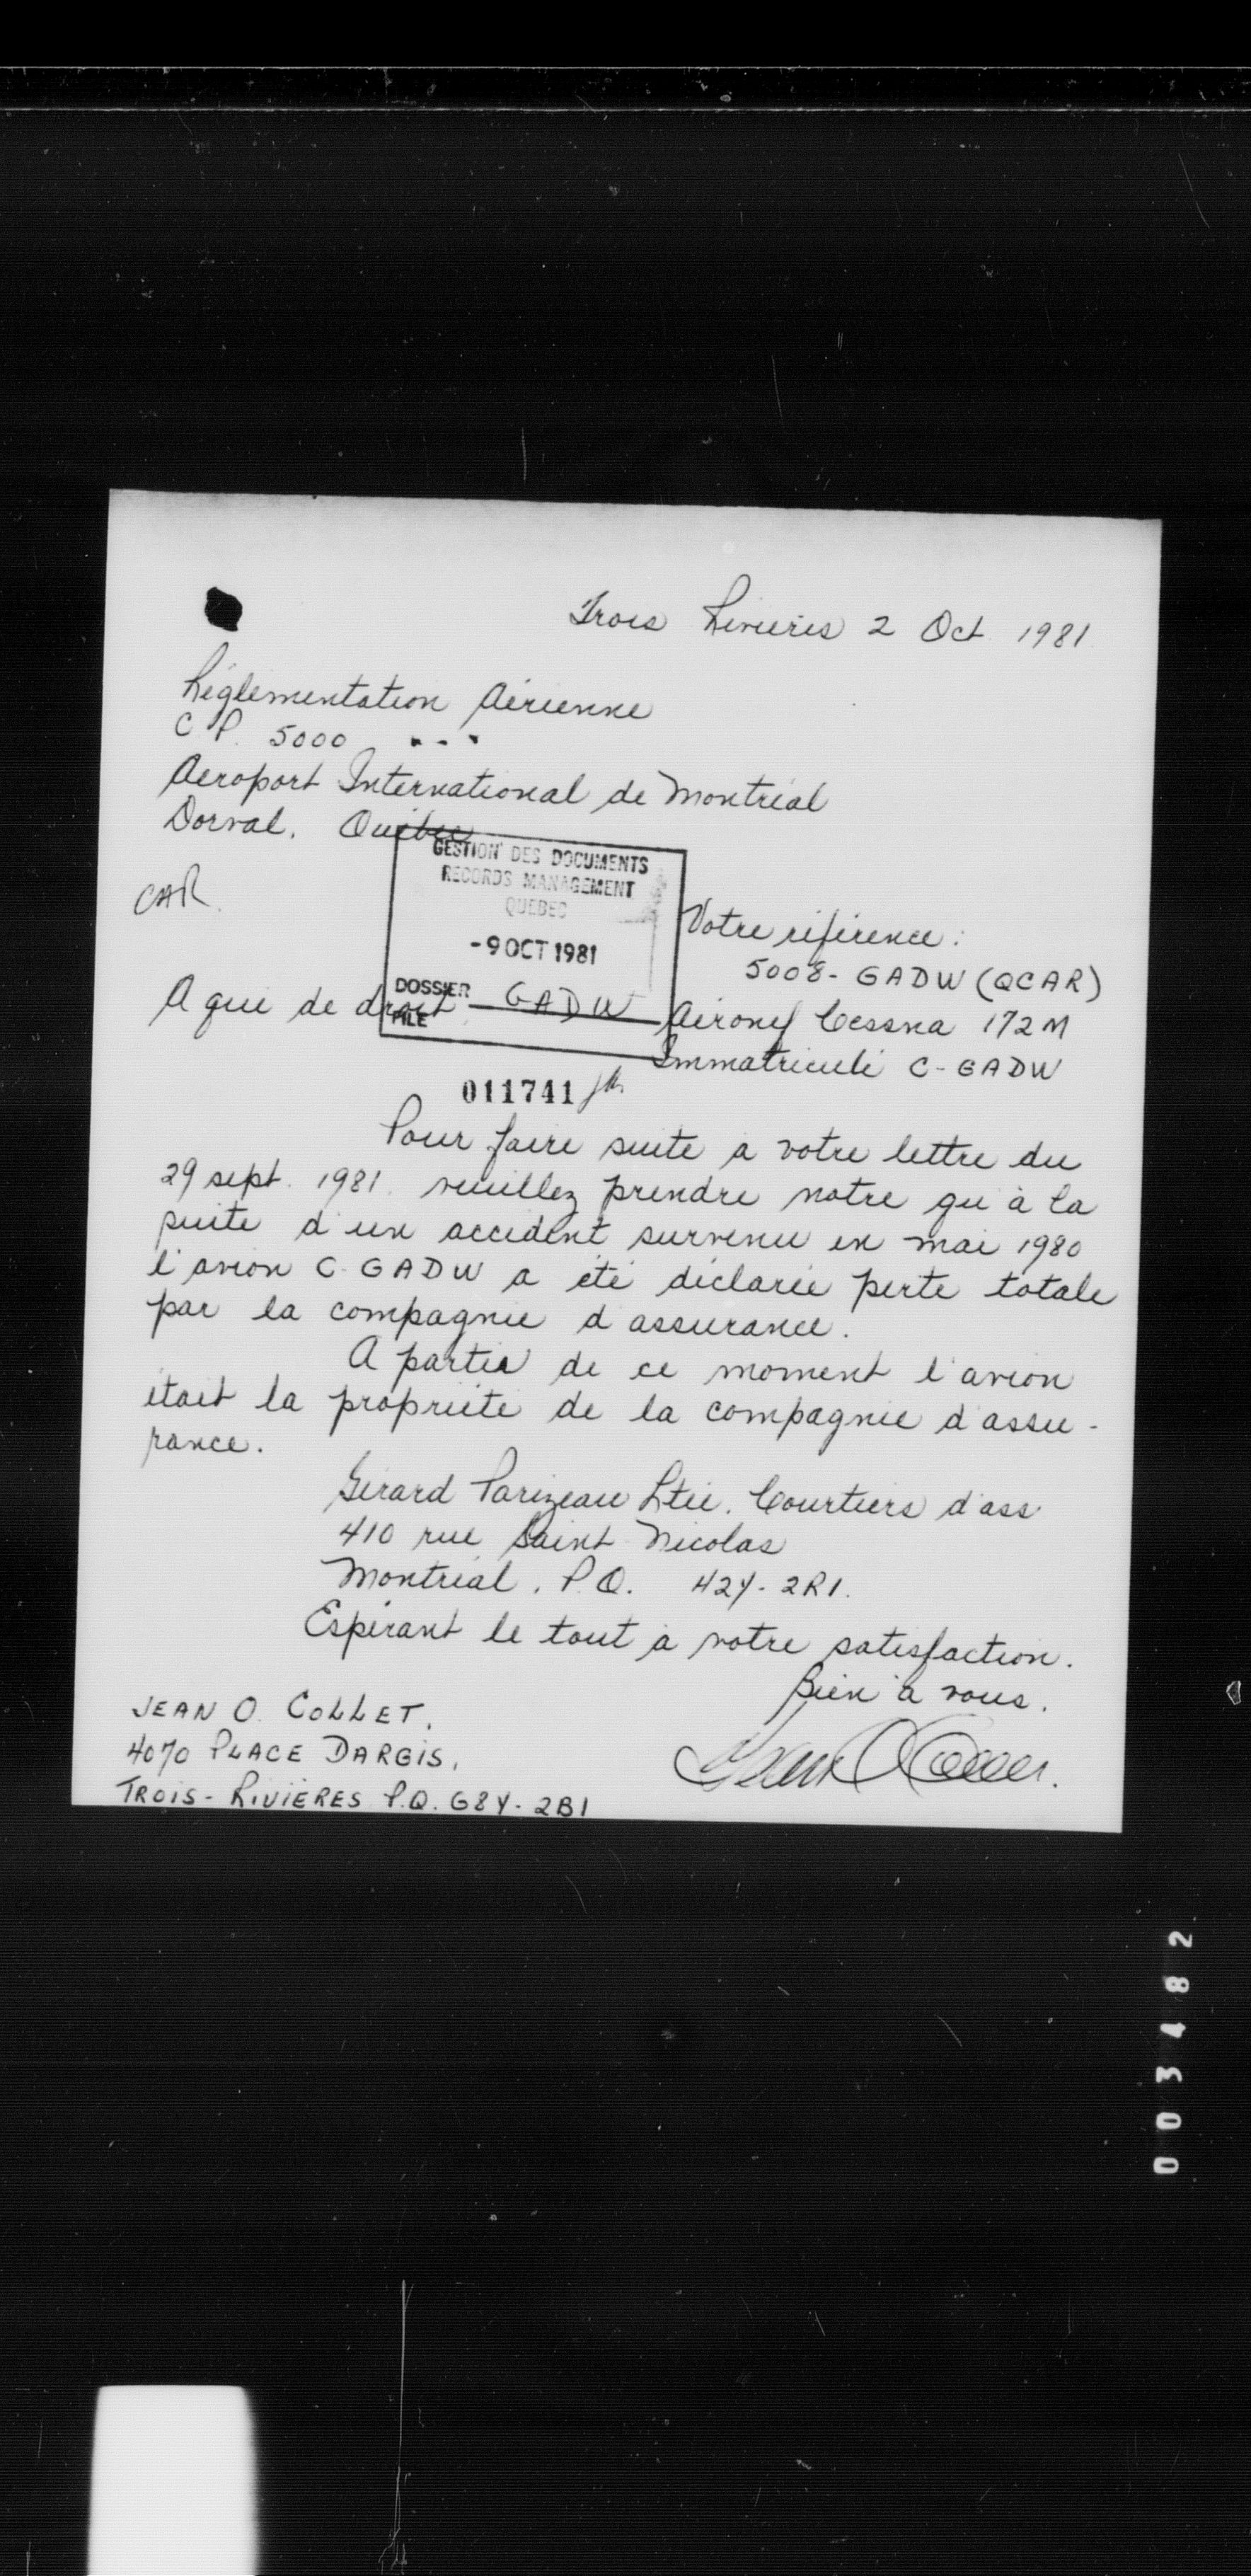 Trois Rivieres 2 Oct 1981
Réglementation Aérienne
C P. 5000
Aeroport International de Montréal
Dorval. Québec
GESTION DES DOCUMENTS
RECORDS MANAGEMENT
QUEBEC
CAR.
-9 OCT 1981
Votre référence:
5008- GADW (QCAR)
DOSSIER
FILE GADW
A qui de droit
Aéronef Cessna 172M
Immatriculé C-GADW
011741
Pour faire suite a votre lettre du
29 sept. 1981. veuillez prendre notre qu'à la
suite d'un accident survenu en mai 1980
l'avion C-GADW a été déclarée perte totale
par la compagnie d'assurance.
A partie de ce moment l'avion
était la propriété de la compagnie d'assu-
rance.
Gérard Parizeau Ltée. Courtiers d'ass
410 rue Saint Nicolas
Montréal. P.Q. H2Y-2R1.
Espérant le tout à votre satisfaction.
Bien à vous.
JEAN O. COLLET.
4070 PLACE DARGIS.
TROIS-RIVIÈRES P.Q. G8Y-2B1
003482